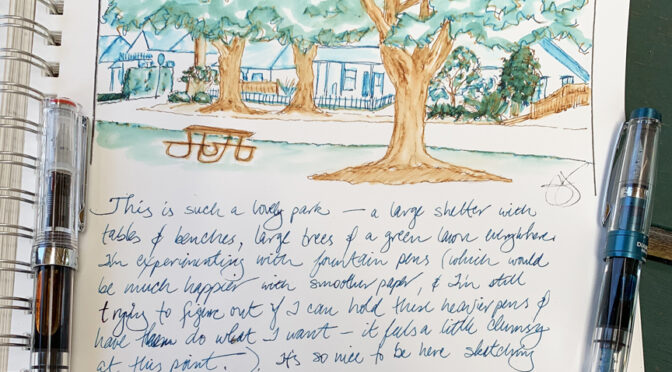 This is such a lovely park — a large shelter with
tables & benches, large trees & a green lawn everywhere.
I'm experimenting with fountain pens (which would
be much happier with smoother paper, & I'm still
trying to figure out if I can hold these heavier pens &
have them do what I want — it feels a little clumsy
at this point.) It's so nice to be here sketching